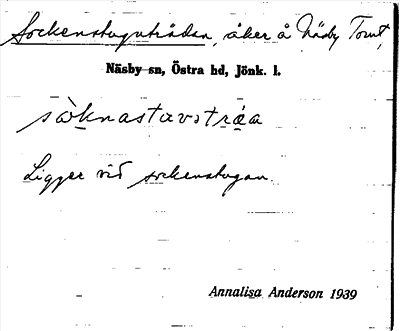 Sockenstuguträdan, åker å Näsby Tomt,
Näsby sn, Östra hd, Jönk. l.
sòknastuvstrá̤a
Ligger vid sockenstugan.
Annalisa Anderson 1939